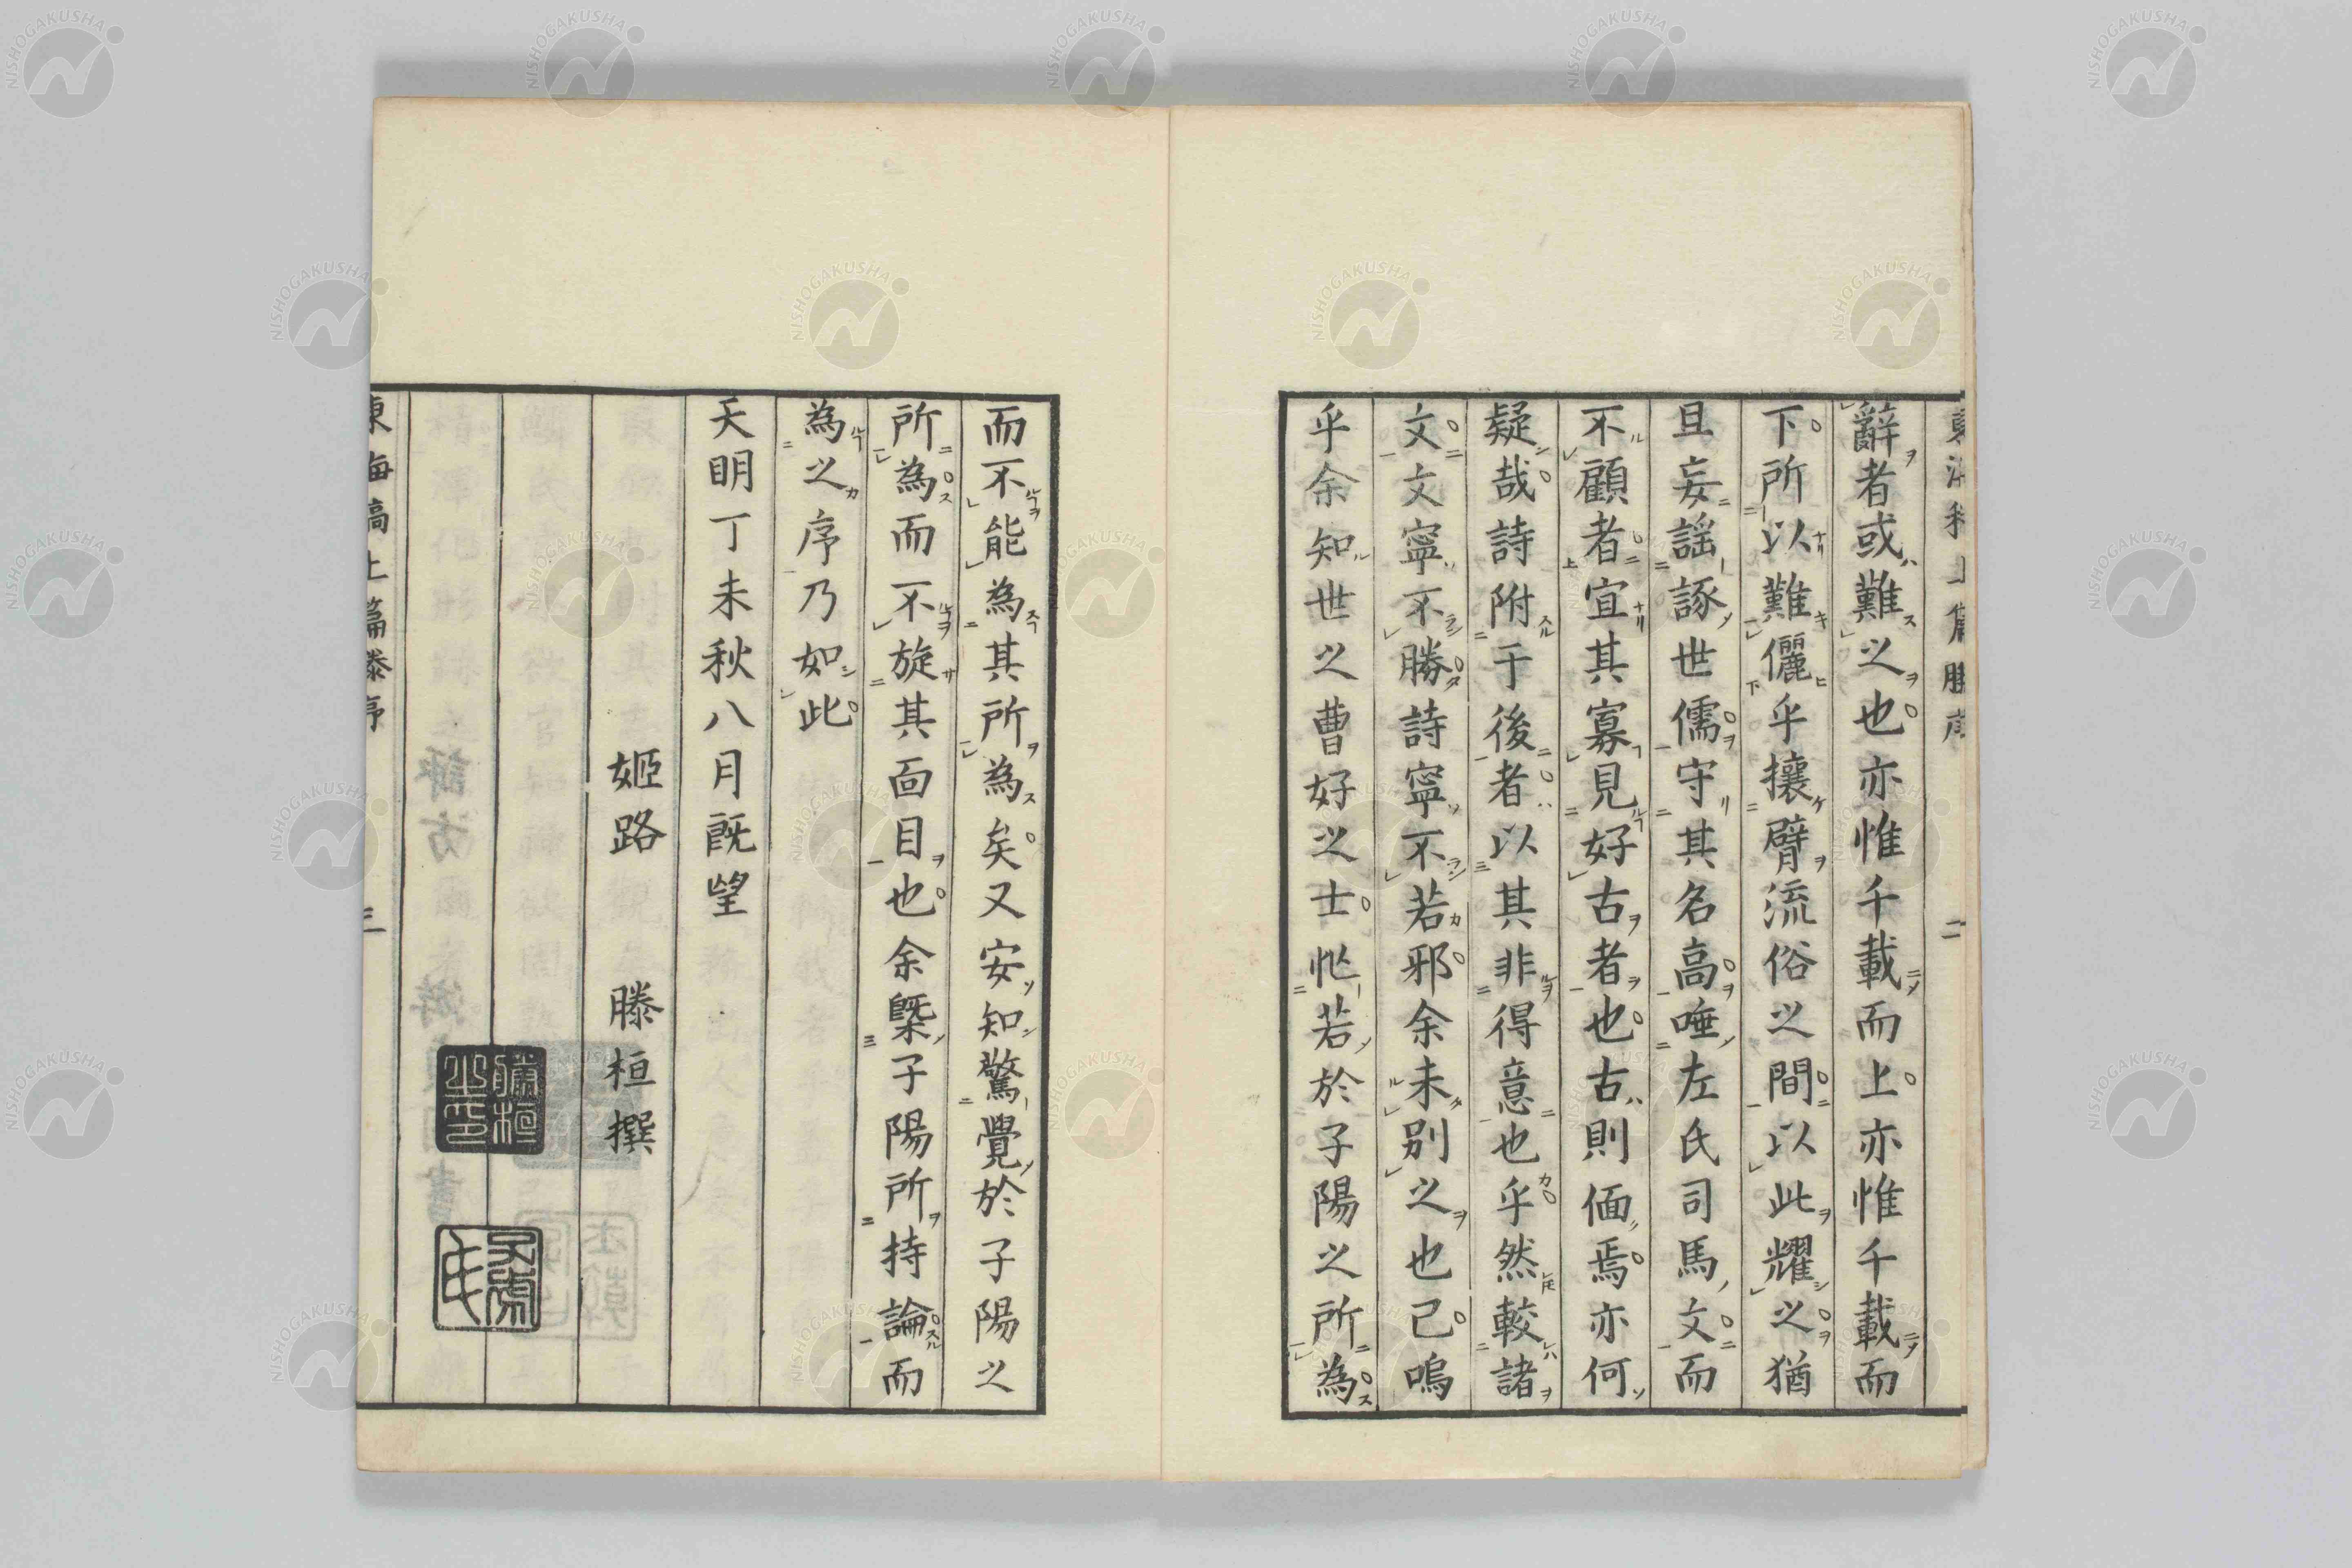 辭者或難之也亦惟千載而上亦惟千載而
下所以難儷乎攘臂流俗之間以此耀之猶
且妄謡諑世儒守其名高唾左氏司馬文而
不顧者宜其寡見好古者也古則偭焉亦何
疑哉詩附于後者以其非得意也乎然較諸
文文寧不勝詩寧不若邪余未別之也已嗚
乎余知世之曹好之士忙若於子陽之所為
而不能為其所為矣又安知驚覺於子陽之
所為而不旋其面目也余槩子陽所持論而
為之序乃如此
天明丁未秋八月既望
姫路 滕桓撰
滕桓之印
東海稿上篇滕序 三
NISHOGAKUSHA